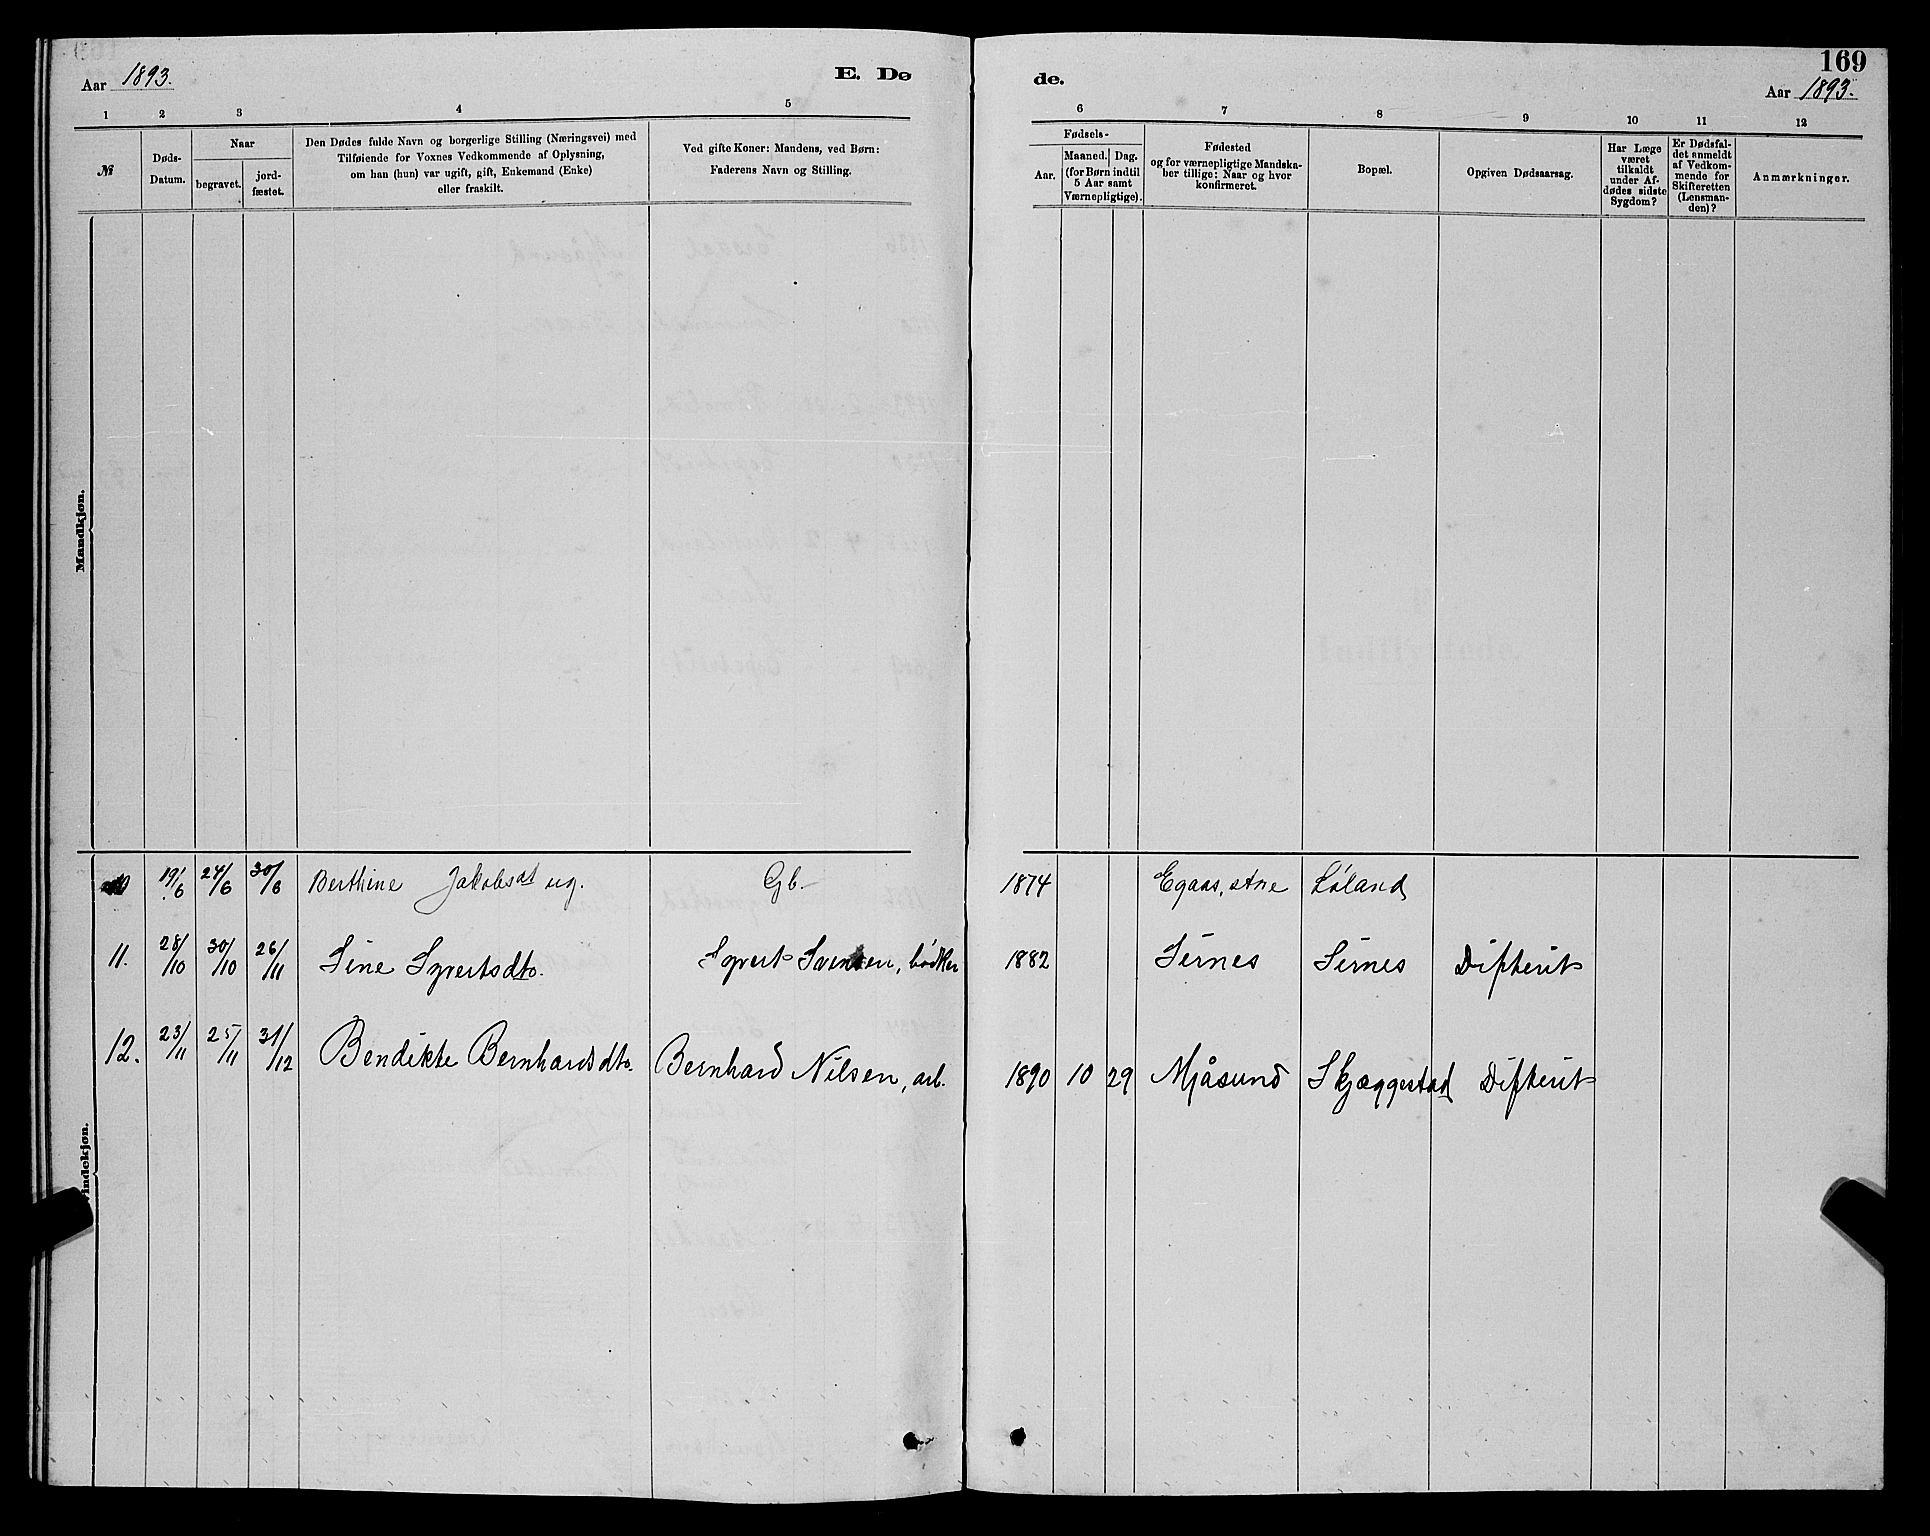 169
Aar 1893. E. Dø de. Aar 1893.
1 2 3 4 5 6 7 8 9 10 11 12
№
Døds-
Datum.
Naar
begravet.
jord-
fæstet.
Den Dødes fulde Navn og borgerlige Stilling (Næringsvei) med
Tilføiende for Voxnes Vedkommende af Oplysning,
om han (hun) var ugift, gift, Enkemand (Enke)
eller fraskilt.
Ved gifte Koner: Mandens, ved Børn:
Faderens Navn og Stilling.
Fødsels-
Aar.
Maaned. Dag.
(for Børn indtil
5 Aar samt
Værnepligtige).
Fødested
og for værnepligtige Mandska-
ber tillige: Naar og hvor
konfirmeret.
Bopæl.
Opgiven Dødsaarsag.
Har Læge
været
tilkaldt
under Af-
dødes sidste
Sygdom?
Er Dødsfal-
det anmeldt
af Vedkom-
mende for
Skifteretten
(Lensman-
den)?
Anmærkninger.
Mandkjøn.
19/6 24/6 30/6 Berthine Jakobsdt ug. Gb. 1874 Egaas, stne Løland
11. 28/10 30/10 26/11 Sine Syvertsdtr. Syvert Svensen, bødker 1882 Sirnes Sirnes Difterit
12. 23/11 25/11 31/12 Bendikte Bernhardsdtr. Bernhard Nilsen, arb. 1890 10 29 Mjåsund Skjæggestad Difterit
vindekjøn.